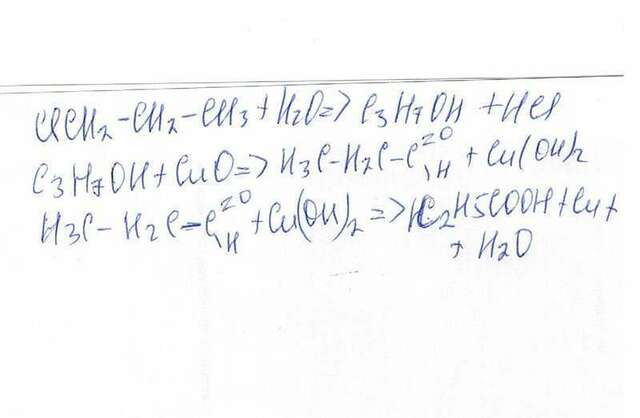 ClCH2-CH2-CH3+H2O=> C3H7OH +HCl
C3H7OH+CuO=> H3C-H2C-C=O\H + Cu(OH)2
H3C-H2C-C=O\H +Cu(OH)2=>C2H5COOH+Cu+
+ H2O